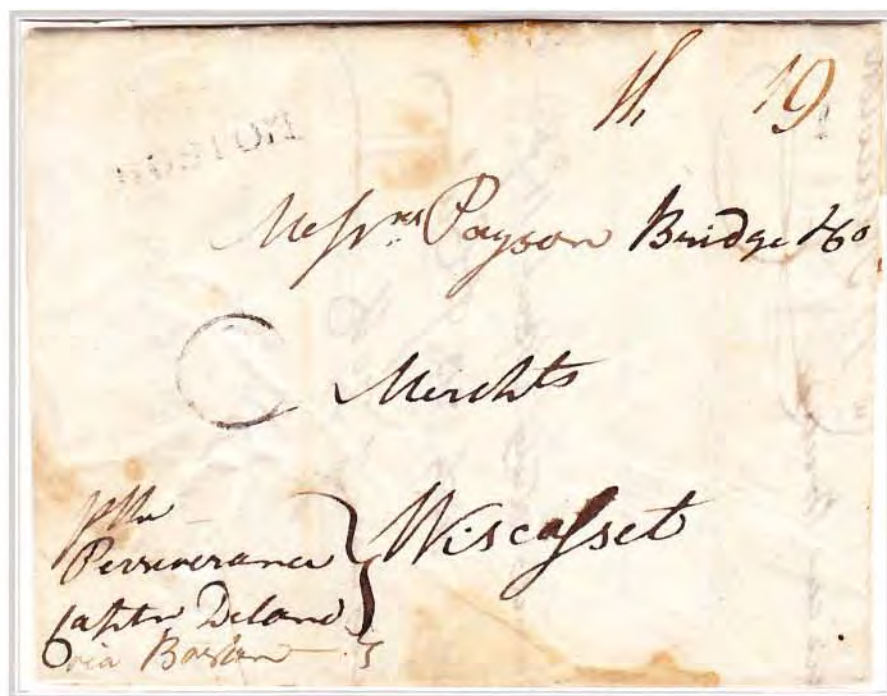 Sh. 19
BOSTON
Messrs. Payson Bridge & Co.
Merchts
Wiscasset
Perseverance
Captn Deland
via Boston